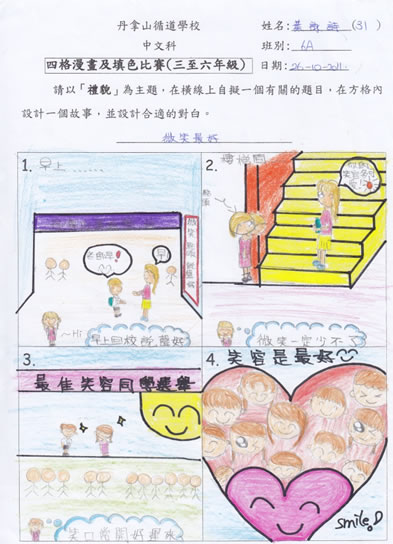 丹拿山循道學校
中文科
四格漫畫及填色比賽(三至六年級)
姓名: (31)
班別: 6A
日期: 26-10-2011
請以「禮貌」為主題,在橫線上自擬一個有關的題目,在方格內
設計一個故事,並設計合適的對白。
微笑最好
1. 早上......
老師早!
早!
~Hi
早上回校時,最好
2. 樓梯間
微笑一定少不了
3.
最佳笑容同學選舉
笑口常開好
4. 笑容是最好
smile :D